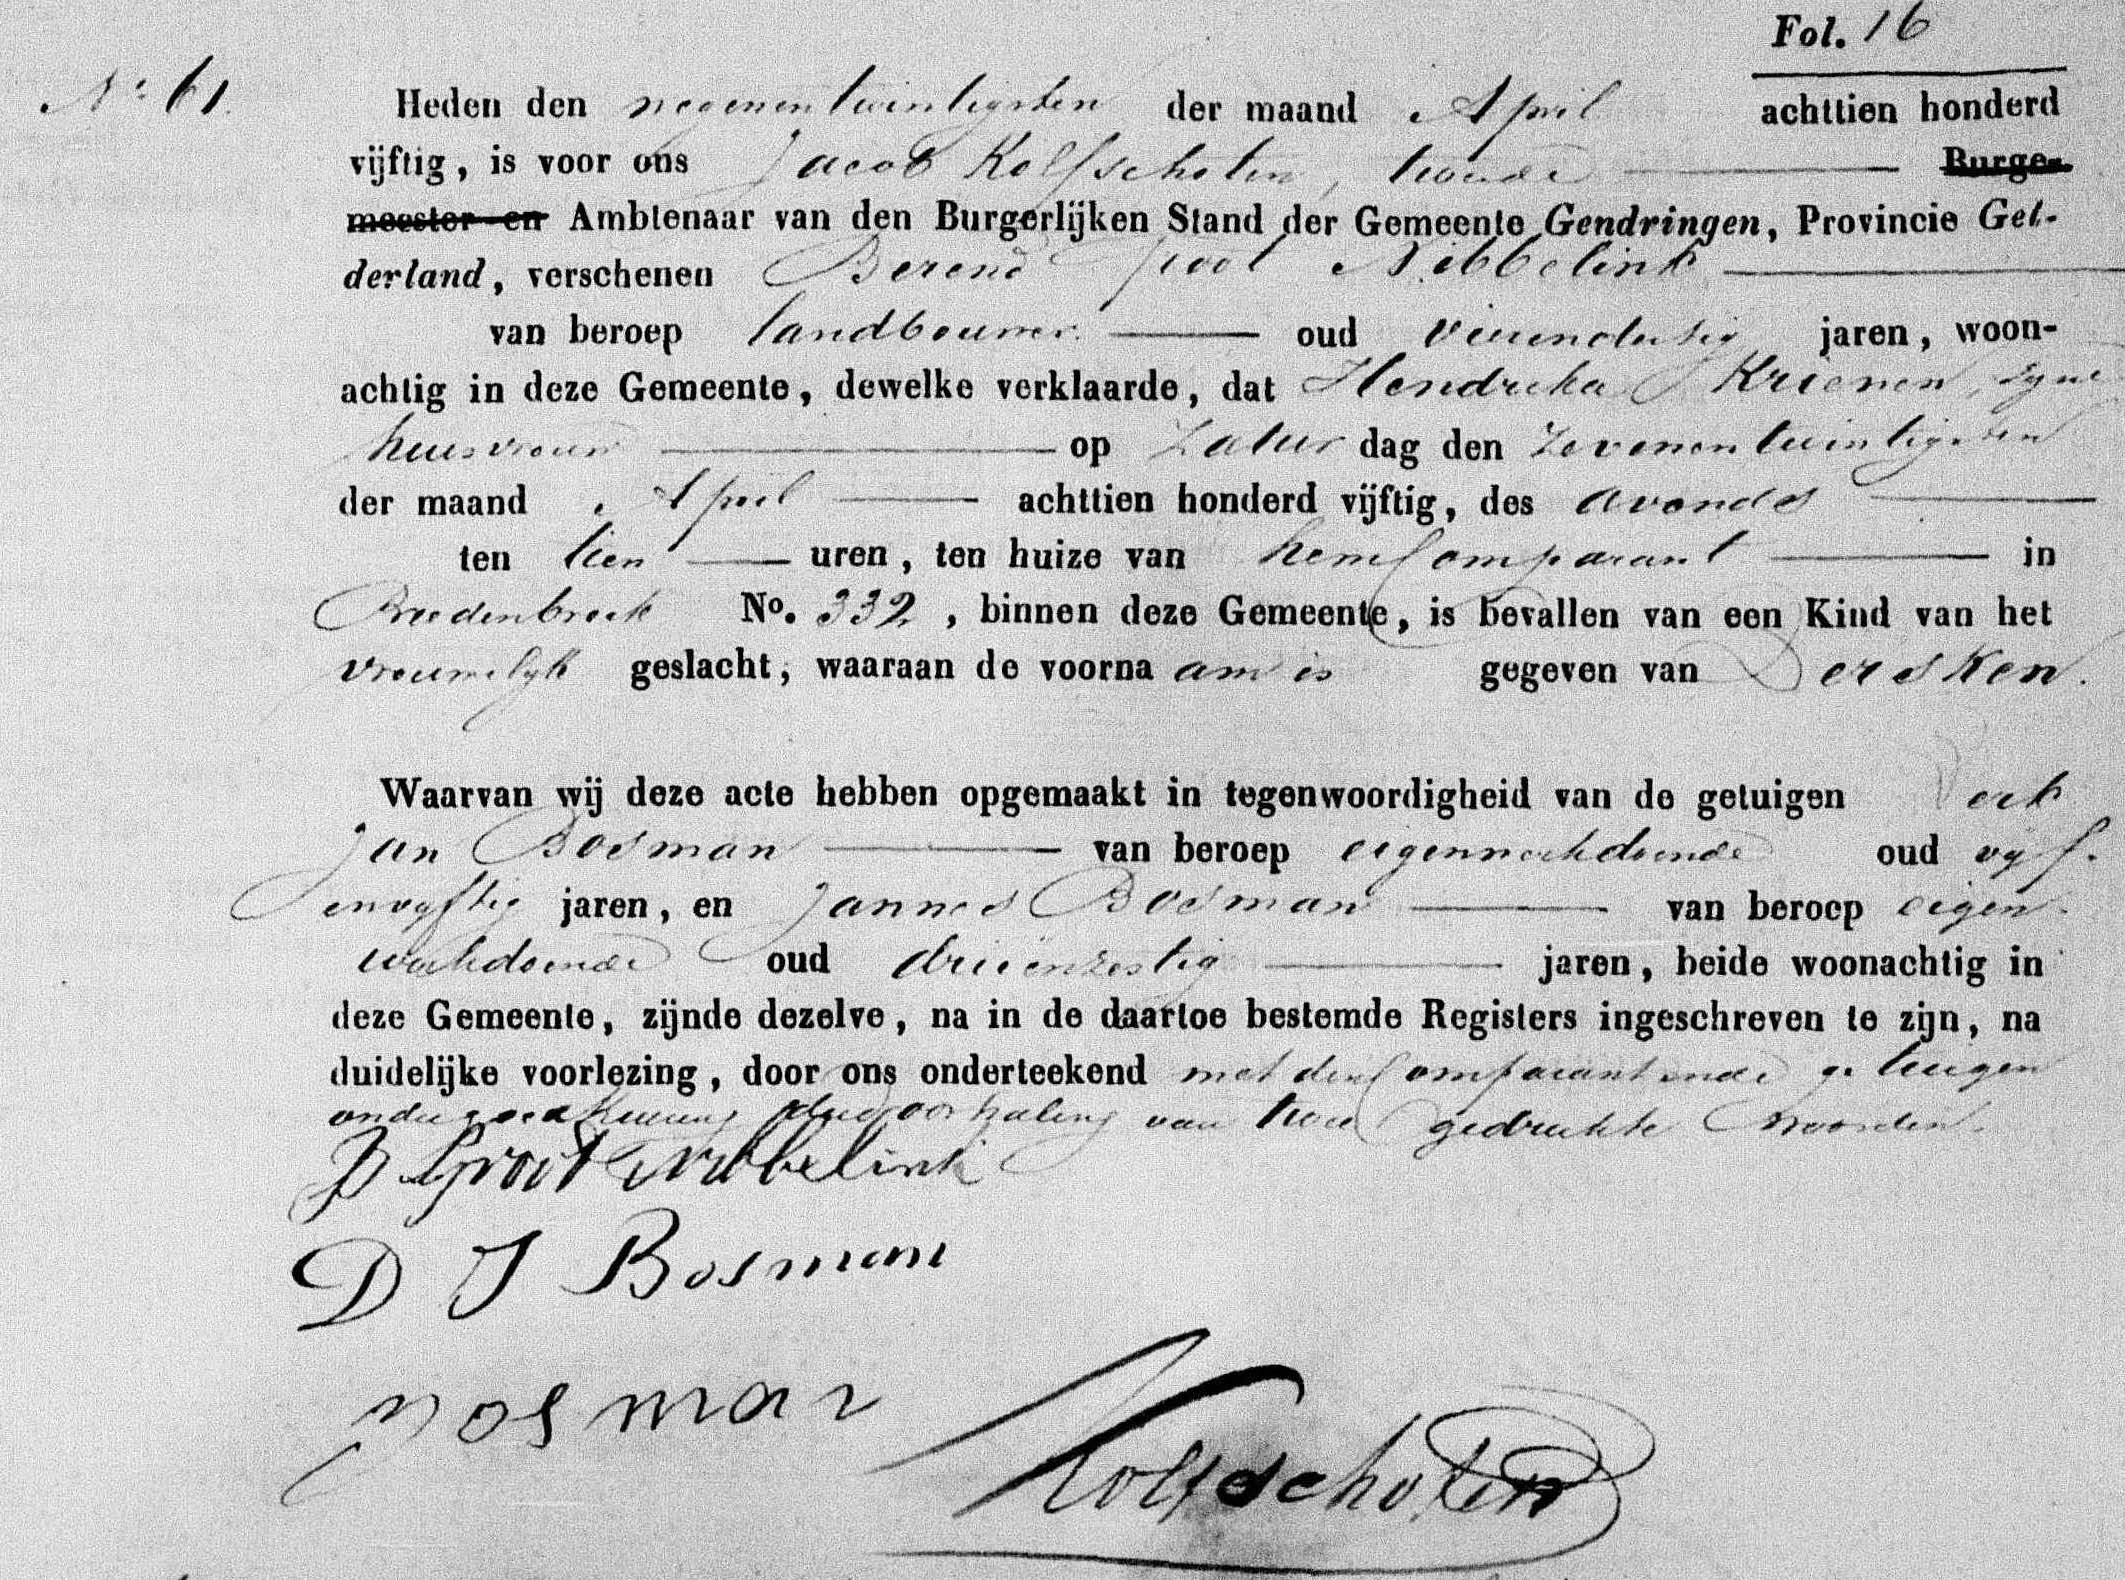 Fol. 16
No 61.
Heden den negenentwintigsten der maand April achttien honderd
vijftig, is voor ons Jacob Kolfschoten, tweede Burge-
meester en Ambtenaar van den Burgerlijken Stand der Gemeente Gendringen, Provincie Gel-
derland, verschenen Berend Groot Nibbelink
van beroep landbouwer oud vierendertig jaren, woon-
achtig in deze Gemeente, dewelke verklaarde, dat Hendrika Krienen, zyne
huisvrouw op Zatur dag den zevenentwintigsten
der maand April achttien honderd vijftig, des avonds
ten tien uren, ten huize van hem Comparant in
Breedenbroek No. 332, binnen deze Gemeente, is bevallen van een Kind van het
vrouwelyk geslacht, waaraan de voorna am is gegeven van Dersken.
Waarvan wij deze acte hebben opgemaakt in tegenwoordigheid van de getuigen Derk
Jan Bosman van beroep eigenwerkdoende oud vyf-
envyftig jaren, en Jannes Bosman van beroep eigen
werkdoende oud drieenzestig jaren, beide woonachtig in
deze Gemeente, zijnde dezelve, na in de daartoe bestemde Registers ingeschreven te zijn, na
duidelijke voorlezing, door ons onderteekend met den Comparant en de getuigen
onder goedkeuring der doorhaling van twee gedrukte woorden.
B Groot Nibbelink
D J Bosman
Bosman
Kolfschoten